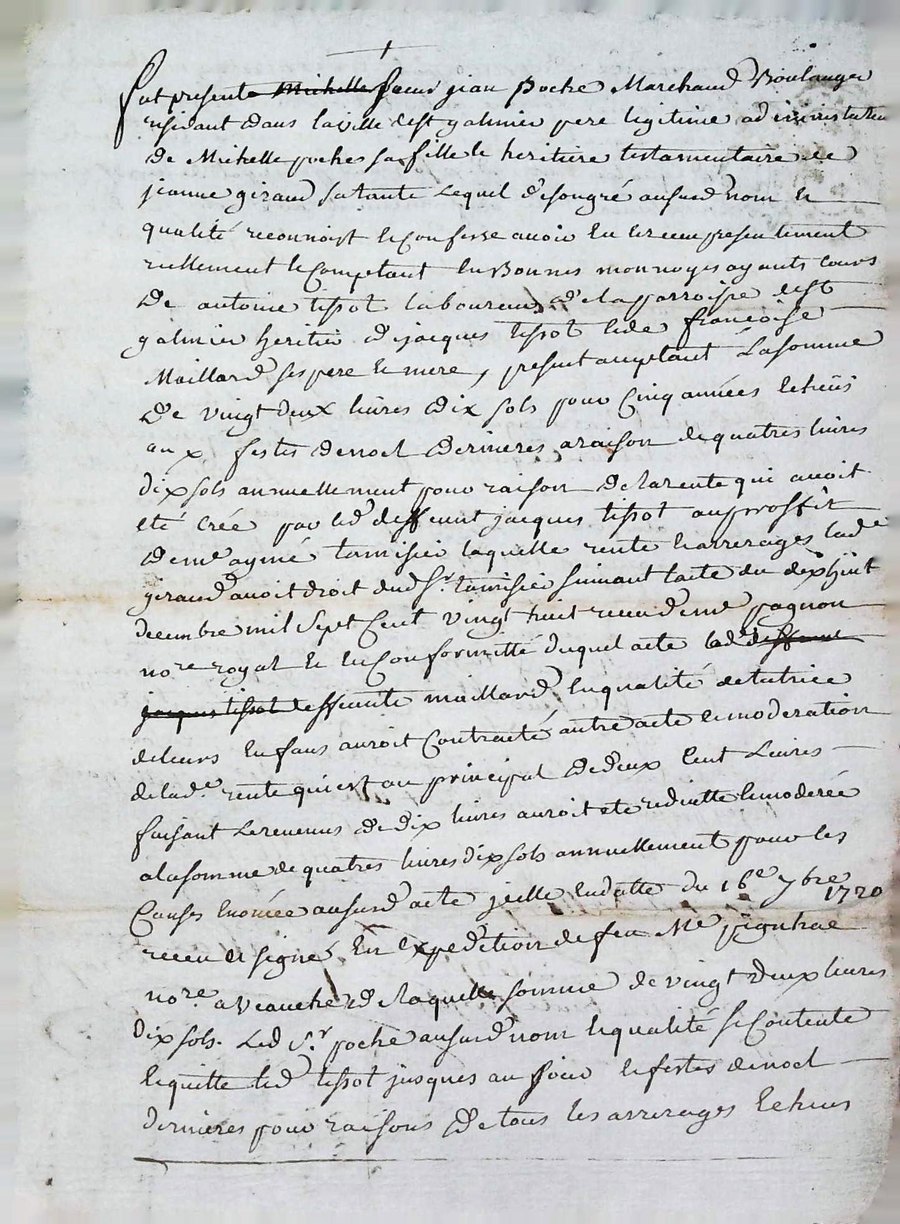 fut presente Michelle sieur jean poche Marchand Boulanger
residant dans la ville de st galmier pere legitime administrateur
de Michelle poches sa fille le heritiere testamentaire de
jeanne giraud sa tante Lequel de son gré aususd nom et
qualité reconnoist le Confesse avoir Eu et receu presentement
reellement le Comptant En Bonnes monnoyes ayants cours
De antoine tissot laboureur de la parroisse de st
galmier heritier de jacques tissot et de francoise
Maillard ses pere et mere, present acceptant La somme
De vingt deux livres dix sols pour Cinq années Echeües
aux festes de noel dernieres a raison de quatres livres
dix sols annuellement pour raison de la rente qui avoit
eté creé par led deffunt jacques tissot au proffit
de me aymé tamisier laquelle rente et arrerages lade
giraud avoit droit dud Sr. tamisier suivant l'acte du dix huit
decembre mil sept Cent vingt huit receu de me pagnon
nore royal et En Conformitté duquel acte lad deffunte
jacques tissot deffunte maillard En qualité de tutrice
de leurs Enfans auroit Contracté autre acte de moderation
de lade rente qui est au principal de deux Cent Livres
faisant Le revenus de dix livres auroit ete reduitte et moderée
a la somme de quatres livres dix sols annuellement pour les
Causes Enoncée aususd acte jcelle En datte du 16e 7bre
1720
receu et signé En Expedition de feu Me
nore a Veauche de laquelle somme de vingt deux livres
dix sols. Led Sr. poche aususd nom et qualité se Contente
et quitte led tissot jusques au jour et festes de noel
dernieres pour raisons de tous les arrerages Echeus